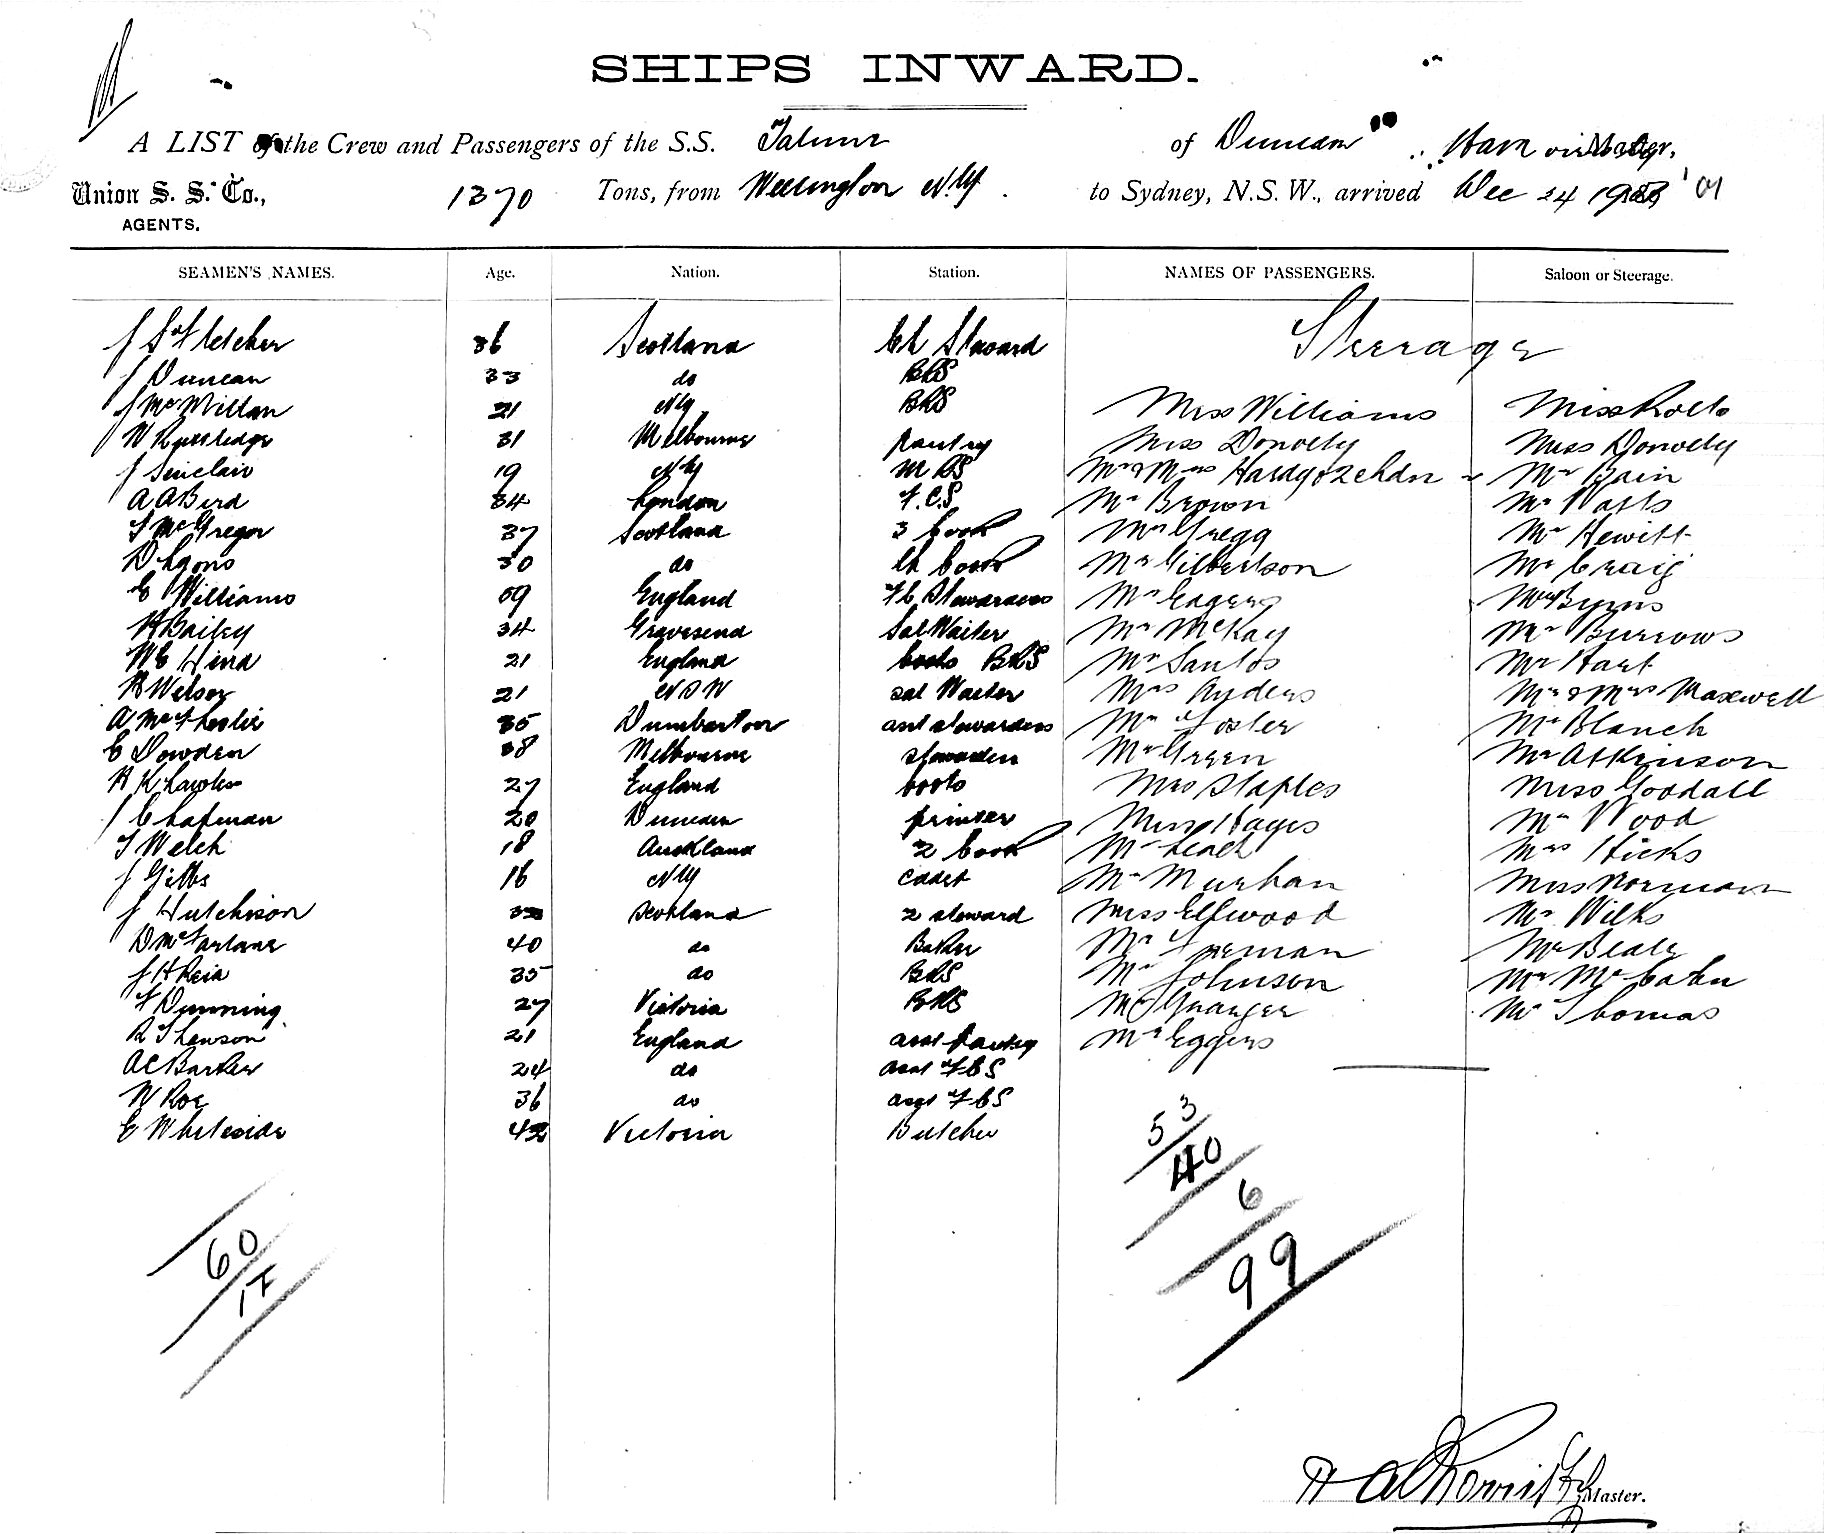 SHIPS INWARD.
A LIST of the Crew and Passengers of the S.S. of Master,
Union S. S. Co., 1370 Tons, from Wellington N.Z. to Sydney, N.S.W., arrived Dec 24 '01
AGENTS.
SEAMEN'S NAMES. Age. Nation. Station. NAMES OF PASSENGERS. Saloon or Steerage.
J S Fletcher 36 Scotland Ch Steward Steerage
J Duncan 33 do BRS
J McMillan 21 NZ BRS Miss Williams Miss Rolls
W Rutledge 31 Melbourne pantry Miss Donvely Miss Donvely
J Sinclair 19 NZ Mr & Mrs Mr Bain
A A Bird 34 London F.C.S Mr Brown Mr Watts
J McGregor 37 Scotland 3 Cook Mr Gregg Mr Hewitt
D Lyons 30 do Ch Cook Mr Gilbertson Mr Craig
E Williams 59 England F C Stewardess Mr Eagers Byrns
H Bailey 34 Gravesend Sal Waiter Mr McKay Mr Burrows
W E Hind 21 England boots BRS Mr Santos Mr Hart
H Wilson 21 NSW sal Waiter Mrs Ryders Mr & Mrs Maxwell
A 35 Dumbarton asst stewardess Mr Foster Mr Blanch
E Dowden 38 Melbourne Mr Green Mr Atkinson
H K Lawler 27 England boots Mrs Staples Miss Goodall
J Chapman 20 printer Miss Hayes Mr Wood
T Welch 18 Auckland 2 Cook Mr Leach Mrs Hicks
J Gibbs 16 NZ cadet Mr Murhan Miss Norman
J Hutchison Scotland 2 steward Miss Ellwood Mr Wilks
D McFarlane 40 do Baker Mr Freeman Mr Beale
J H Reid 35 do BRS Mr Johnson Mr McCahn
F Dunning 27 Victoria BRS Mr Granger Mr Thomas
R T Henson 21 England asst Pantry Mr Eggers
A C Barker 24 do asst F C S
W Roe 36 do asst F C S
E Whiteside Victoria Butcher
53
40
6
99
60
17
Master.